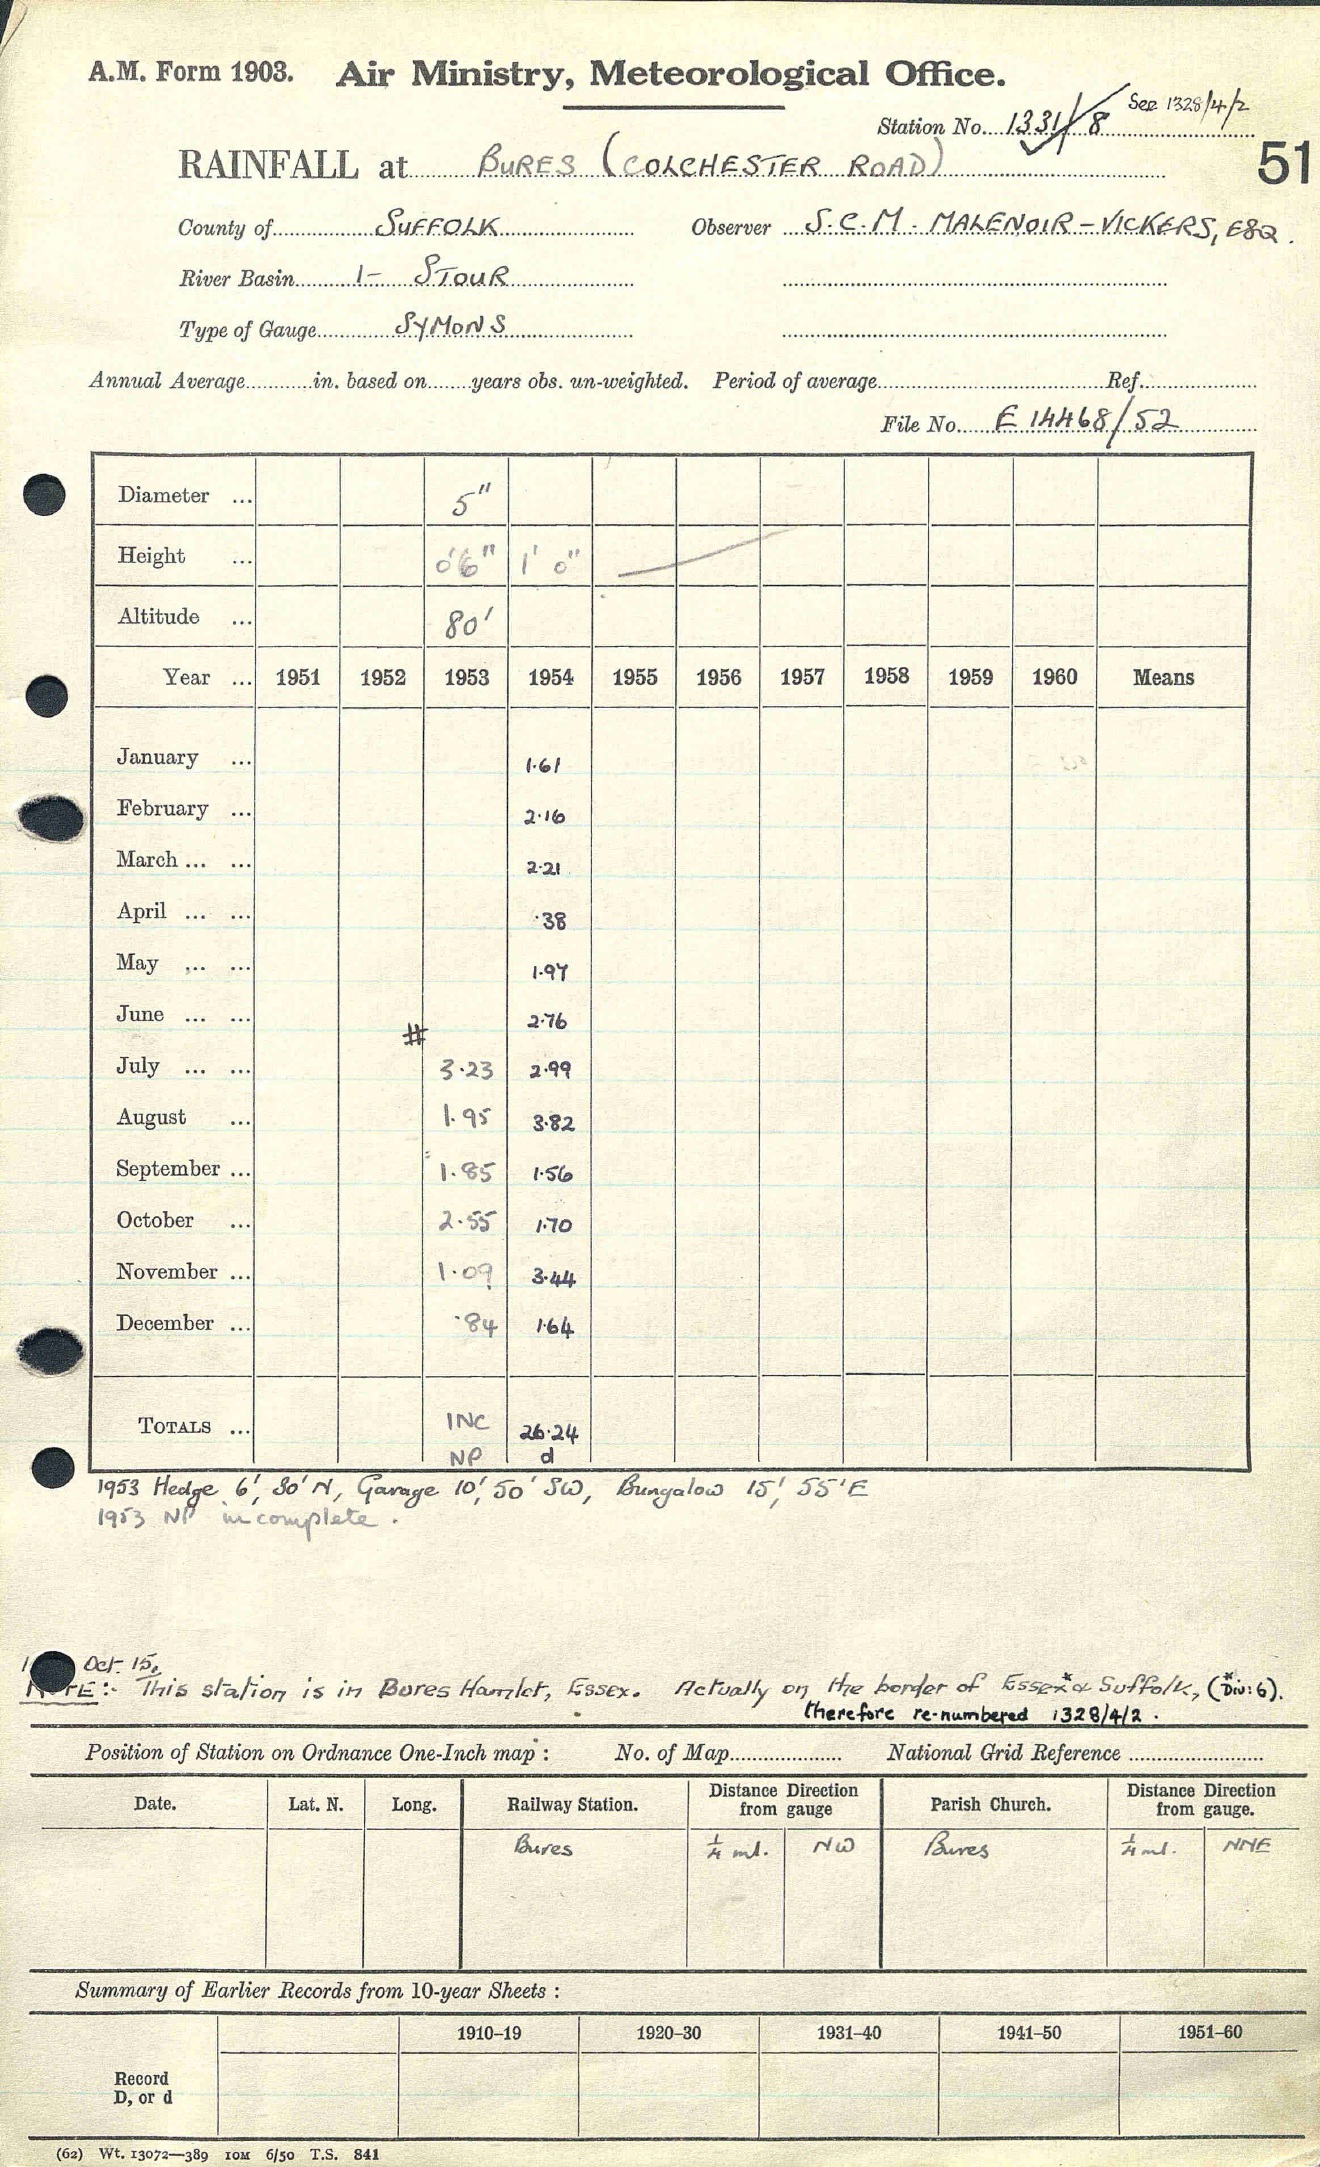 A.M. Form 1903. Air Ministry, Meteorological Office.
See 1328/4/2
Station No. 1331/8
RAINFALL at BURES (COLCHESTER ROAD)
51
County of SUFFOLK Observer S.C.M. MALENOIR-VICKERS, ESQ.
River Basin 1- STOUR
Type of Gauge SYMONS
Annual Average............in. based on.......years obs. un-weighted. Period of average..............................Ref...................
File No. E 14468/52
Diameter ... 5"
Height ... 0'6" 1' 0"
Altitude ... 80'
Year ... 1951 1952 1953 1954 1955 1956 1957 1958 1959 1960 Means
January ... 1.61
February ... 2.16
March ... ... 2.21
April ... ... .38
May ... ... 1.97
June ... ... 2.76
#
July ... ... 3.23 2.99
August ... 1.95 3.82
September ... 1.85 1.56
October ... 2.55 1.70
November ... 1.09 3.44
December ... .84 1.64
TOTALS ... INC 26.24
NP d
1953 Hedge 6', 30'N, Garage 10', 50' SW, Bungalow 15', 55'E
1953 NP incomplete.
Oct. 15,
NOTE:- This station is in Bures Hamlet, Essex. Actually on the border of Essex* & Suffolk, (*Div: 6).
therefore re-numbered 1328/4/2.
Position of Station on Ordnance One-Inch map : No. of Map.................. National Grid Reference ......................
Date. Lat. N. Long. Railway Station. Distance Direction from gauge Parish Church. Distance Direction from gauge.
Bures ¼ ml. NW Bures ¼ ml. NNE
Summary of Earlier Records from 10-year Sheets :
1910–19 1920–30 1931–40 1941–50 1951–60
Record
D, or d
(62) Wt. 13072—389 10M 6/50 T.S. 841